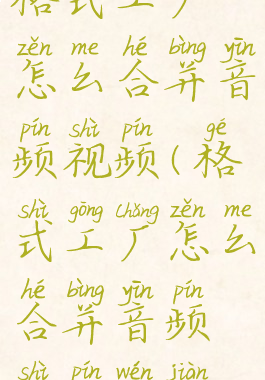 格式工厂
zěn me hé bìng yīn
怎么合并音
pín shì pín gé
频视频(格
shì gōng chǎng zěn me
式工厂怎么
hé bìng yīn pín
合并音频
shì pín wén jiàn